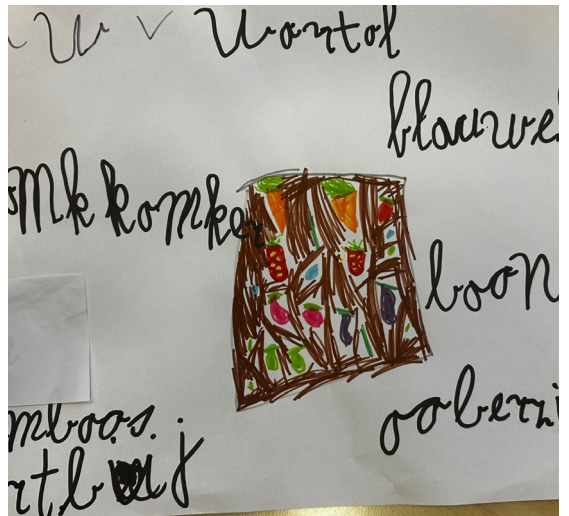 Wortol
blauwe
omkkomker
boon
ooberzi
mboos.
rtbuj